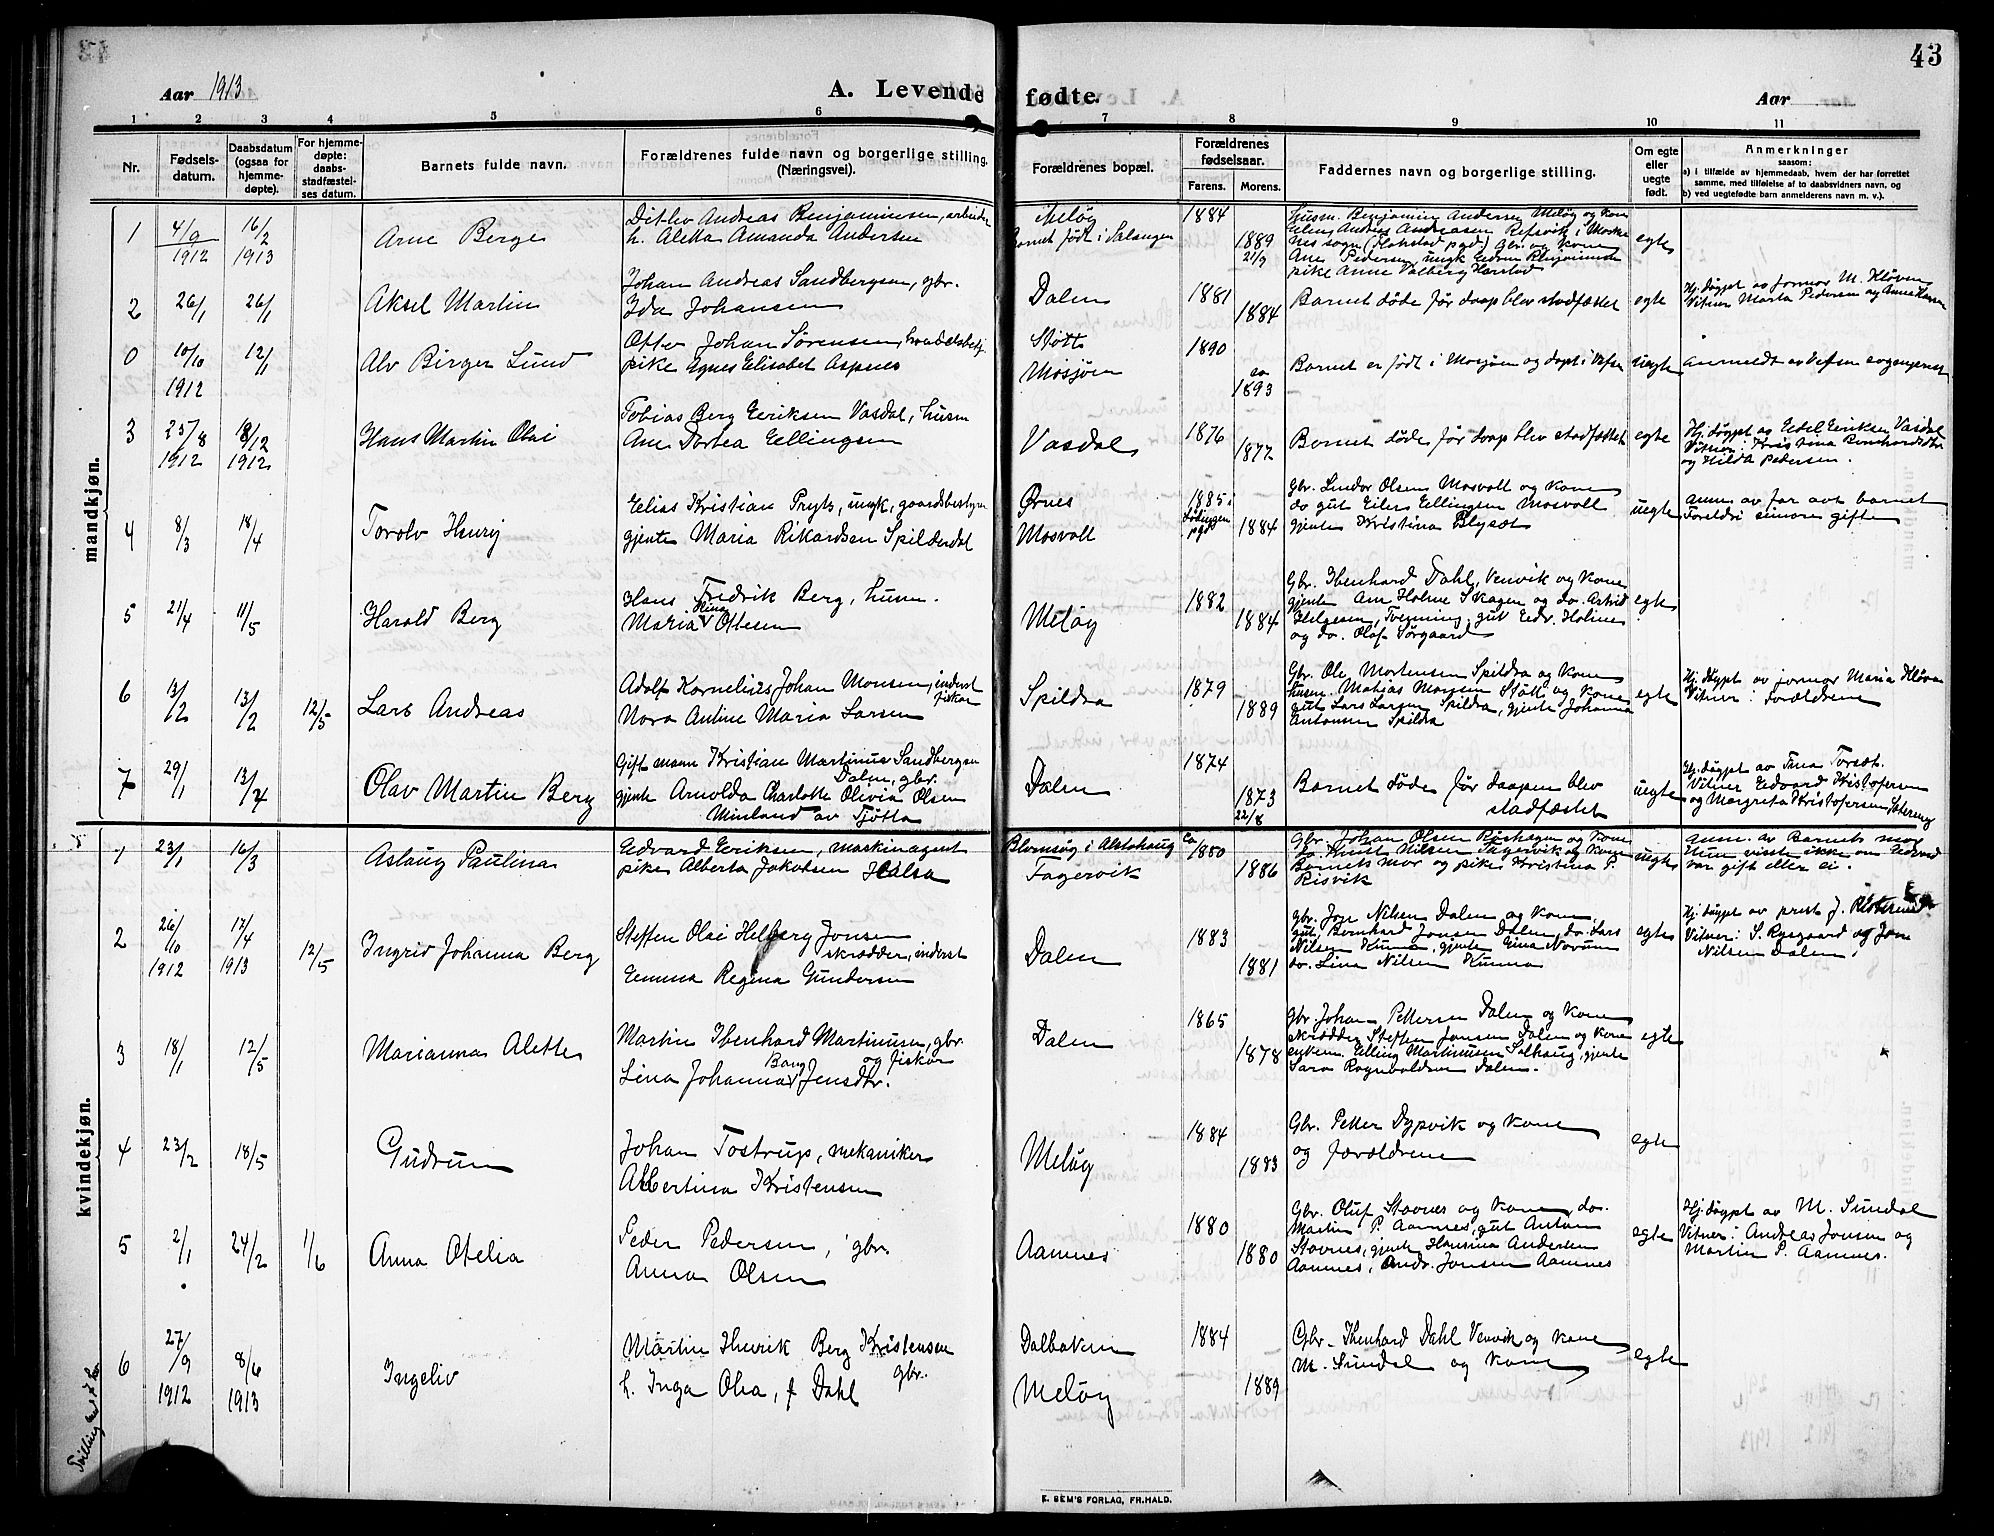 43
Aar 1913
A. Levende fødte.
Aar
1 2 3 4 5 6 7 8 9 10 11
Nr.
Fødsels-
datum.
Daabsdatum
(ogsaa for
hjemme-
døpte).
For hjemme-
døpte:
daabs-
stadfæstel-
ses datum.
Barnets fulde navn.
Forældrenes fulde navn og borgerlige stilling.
(Næringsvei).
Forældrenes bopæl.
Forældrenes
fødselsaar.
Farens. Morens.
Faddernes navn og borgerlige stilling.
Om egte
eller
uegte
født.
Anmerkninger
saasom:
a) i tilfælde av hjemmedaab, hvem der har forrettet
samme, med tilføielse af to daabsvidners navn, og
b) ved uegtefødte barn anmelderens navn m. v.).
mandkjøn.
1 4/9 1912 16/2 1913 Arne Berge
Ditlev Andreas Benjaminsen, arbeider
h. Aletta Amanda Andersen
Meløy
Barnet født i Salangen
1884 1889 21/9
Husm. Benjamin Andersen Meløy og kone
egte
2 26/1 26/1 Aksel Martin
Johan Andreas Sandbergsen, gbr.
Ida Johansen
Dalen 1881 1884
Barnet døde før daap blev stadfæstet egte
Hj.døypt av jormor M. Kløven
Vitner Marta Pedersen og Anna Larsen
0 10/10 1912 12/1 Alv Birger Lund
Otto Johan Sørensen, handelsbetj.
pike Agnes Elisabet Aspnes
Støtt
Mosjøen
1890 ca 1893
Barnet er født i Mosjøen og døpt i Vefsn uegte
anmeldt av Vefsn sogneprest
3 25/8 1912 8/12 1912 Hans Martin Olai
Tobias Berg Eriksen Vasdal, husm
Ane Dortea Ellingsen
Vasdal 1876 1877
Barnet døde før daap blev stadfæstet egte
Hj.døypt og Edel Eriksen Vasdal
Vitner: Kristina Bernhardsdtr
og Hilda Pedersen.
4 8/3 18/4 Torolv Henrij
Elias Kristian Prytz, ungk, gaardsbestyrer
gjente Maria Rikardsen Spilderdal
Ørnes
Mosvoll
1885 i Lødingen pgd 1884
Gbr. Lindor Olsen Mosvoll og kone
do gut Eilert Ellingsen Mosvoll
gjente Kristina Blyset
uegte
anm. av far avt barnet
Foreldri sinore gifte
5 21/4 11/5 Harold Berg
Hans Fredrik Berg, husm.
Maria Stina Ottesen
Meløy 1882 1884
Gbr. Ibenhard Dahl, Venvik og kone
gjente Ane Holme Skagen og do. Astrid
Helgesen, Tverning, gut Edv. Holme
og do. Olaf Sørgaard
egte
6 13/2 13/2 12/5 Lars Andreas
Adolf Kornelius Johan Monsen, inderst
fisker
Nora Antine Maria Larsen
Spildra 1879 1889
Gbr. Ole Mortensen Spildra og kone
husm. Matias Monsen Støtt og kone
gut Lars Larsen Spildra, gjente Johanna
Antonsen Spildra
egte
Hj.døypt av jormor Maria Kløven
Vitner: Forældrene
7 29/1 13/4 Olav Martin Berg
Gift mann Kristian Martinus Sandbergsen
Dalen, gbr.
gjente Arnolda Charlotte Olivia Olsen
Minland av Tjøtta
Dalen 1874 1873 22/8
Barnet døde før daapen blev
stadfæstet
uegte
Hj.døypt av Tina Torset.
Vitner Edvard Kristofersen
og Margreta Kristofersen, Sætereng
kvindekjøn.
1 23/1 16/3 Aslaug Paulina
Edvard Eriksen, maskinagent
pike Alberta Jakobsen Halsa
Blomsøy i Alstahaug
Fagervik
Ca 1880 1886
Gbr. Johan Olsen Røshagen og kone
do. Knut Nilsen Fagervik og kone
Barnets mor og pike Kristina P.
Risvik
uegte
anm. av Barnets mor
Hun visste ikke om Edvard
var gift eller ei.
2 26/10 1912 17/4 1913 12/5 Ingrid Johanna Berg
Steffen Olai Helberg Jonsen
skrædder, inderst
Emma Regina Gundersen
Dalen 1883 1881
gbr. Jon Nilsen Dalen og kone
gut Bernhard Jonsen Dalen, do. Lars
Nilsen Kunna, gjente Gina Novum
do. Lina Nilsen Kunna
egte
Hj.døypt av prest J.
Vitner: S. Rysgaard og Jon
Nilsen Dalen.
3 18/1 12/5 Marianna Alette
Martin Ibenhard Martinusen, gbr.
og fisker
Lina Johanna Bang Jensdtr.
Dalen 1865 1878
gbr. Johan Pettersen Dalen og kone
skrædder Steffen Jonsen Dalen og kone
enkem. Elling Martinusen Solhaug, gjente
Sara Ragnvaldsen Dalen.
egte
4 23/2 18/5 Gudrun
Johan Tostrup, mekaniker
Albertina Kristensen
Meløy 1884 1883
Gbr. Petter Dypvik og kone
og forældrene
egte
5 2/1 24/2 1/6 Anna Otelia
Peder Pedersen, gbr.
Anna Olsen
Aamnes 1880 1880
Gbr. Oluf Stavnes og kone, do.
Martin P. Aamnes, gut Anton
Stavnes, gjente Hansina Andersen
Aamnes, Andr. Jonsen Aamnes
egte
Hj.døypt av M. Sundal
Vitner: Andreas Jonsen og
Martin P. Aamnes.
6 27/9 1912 8/6 1913 Ingeliv
Martin Henrik Berg Kristensen
gbr.
h. Inga Olea, f. Dahl
Dalbakken
Meløy
1884 1889
Gbr. Ibenhard Dahl Venvik og kone
M. Sundal og kone
egte
Tvilling med
E. SEM'S FORLAG, FR.HALD.